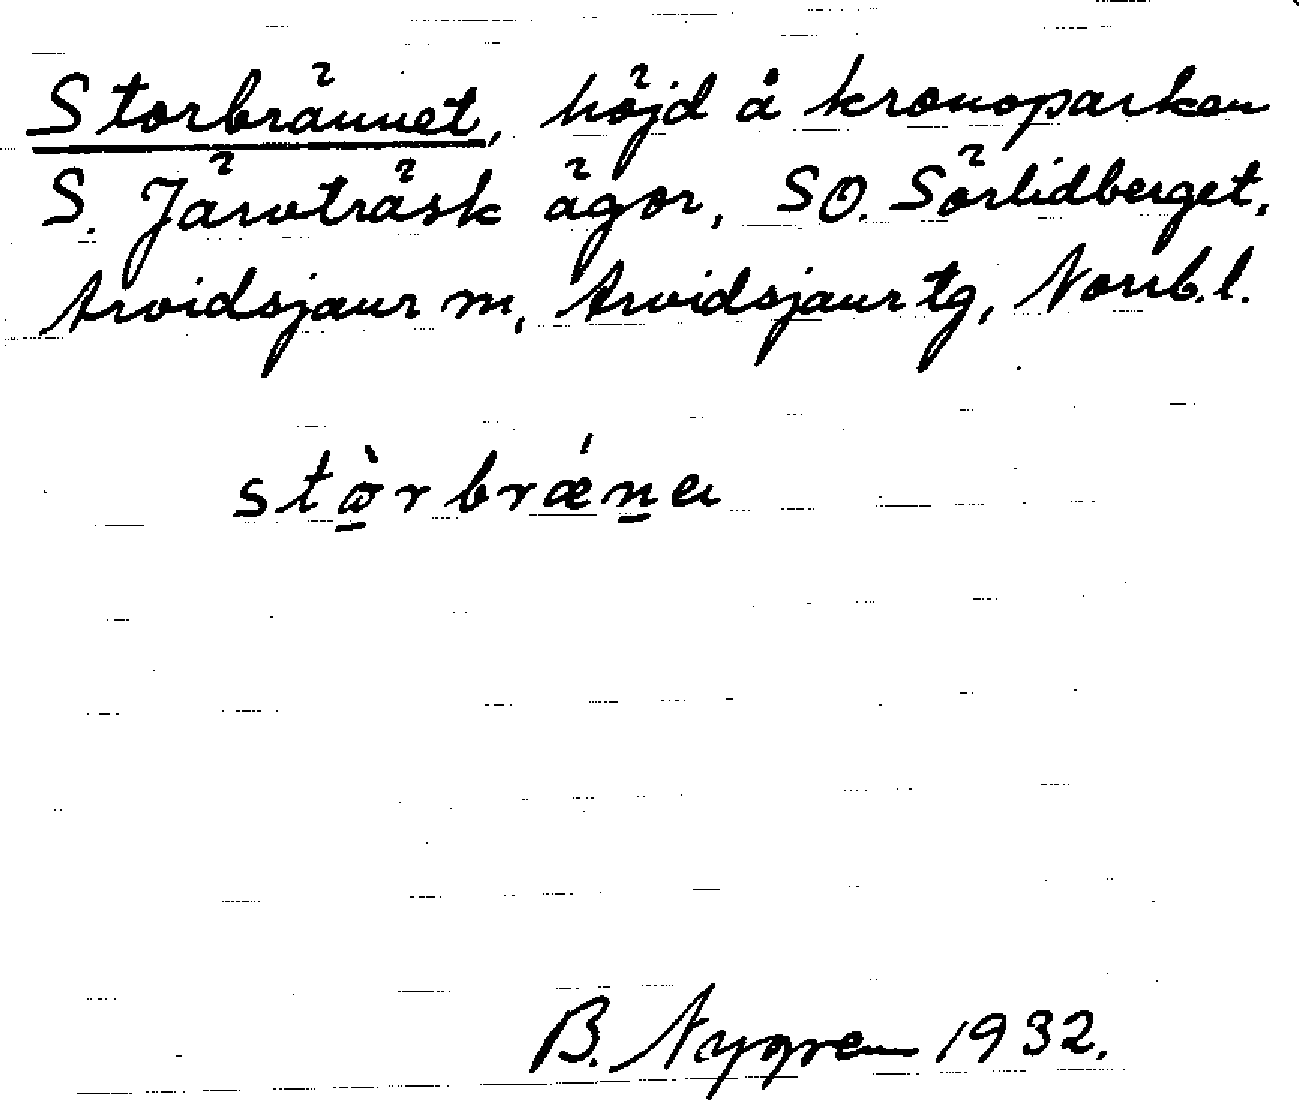 Storbrännet, höjd å kronoparken
S. Järvträsk ägor, SO. Sörlidberget,
Arvidsjaur m, Arvidsjaur tg, Norrb.l.
stɷ̠̀rbrǽn̠a
B. Nygren 1932.